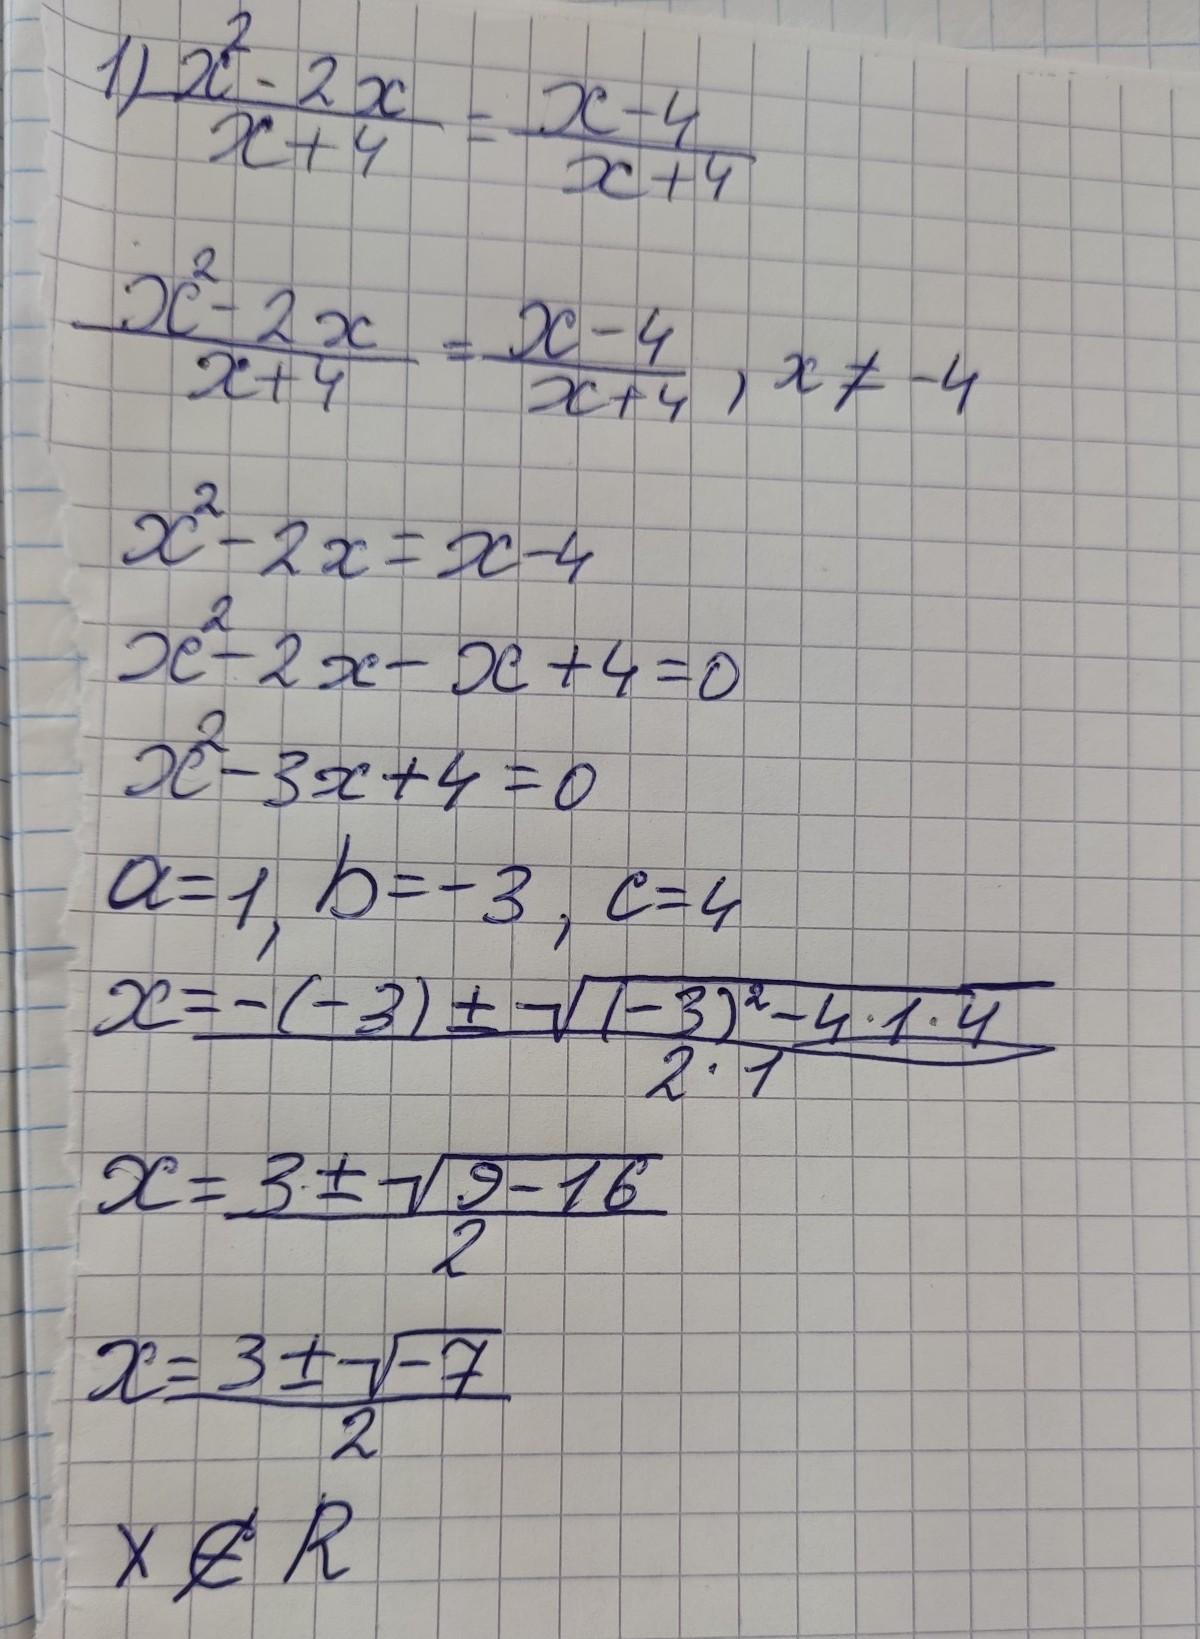 1) x² - 2x / x+4 = x-4 / x+4
x² - 2x / x+4 = x-4 / x+4 , x ≠ -4
x² - 2x = x - 4
x² - 2x - x + 4 = 0
x² - 3x + 4 = 0
a = 1, b = -3, c = 4
x = -(-3) ± √(-3)² - 4·1·4 / 2·1
x = 3 ± √9-16 / 2
x = 3 ± √-7 / 2
x ∉ R